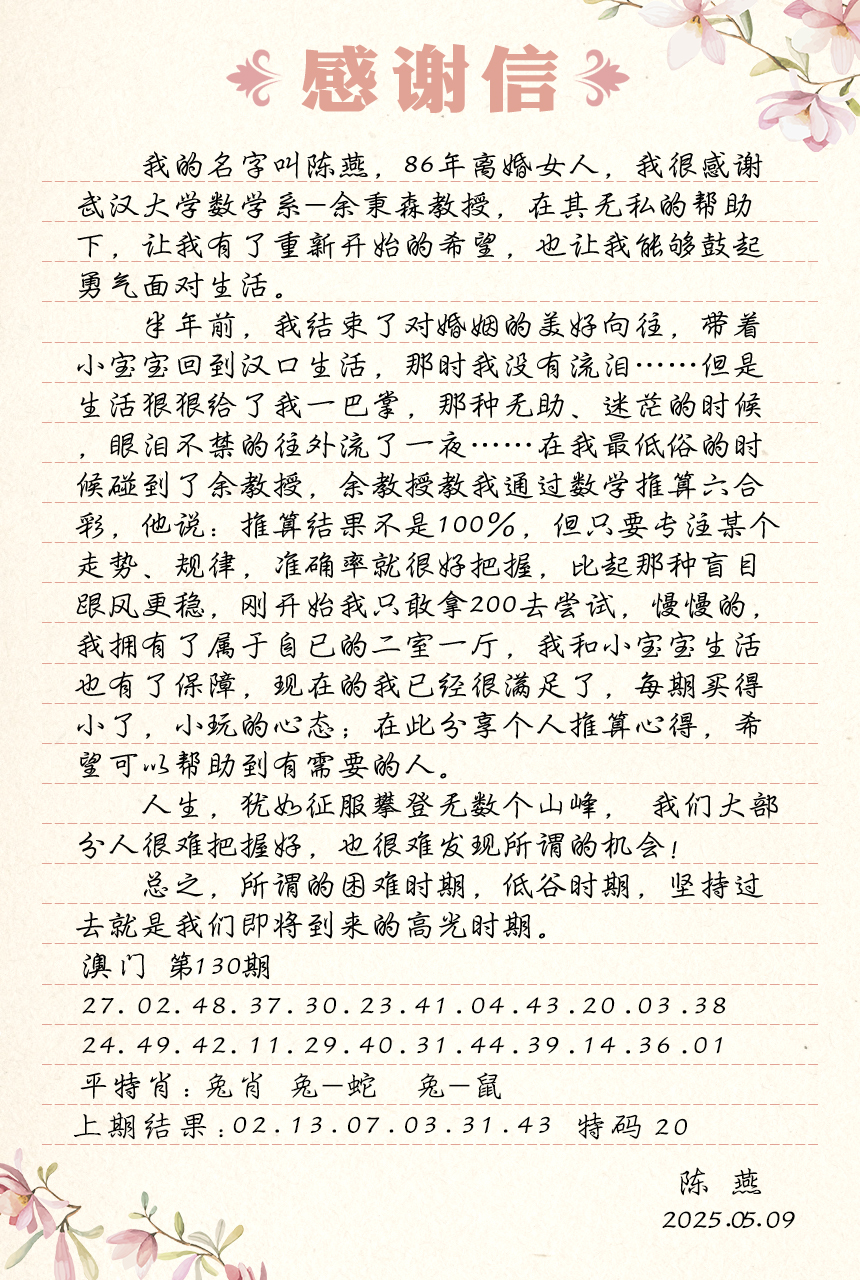 感谢信
我的名字叫陈燕，86年离婚女人，我很感谢
武汉大学数学系—余秉森教授，在其无私的帮助
下，让我有了重新开始的希望，也让我能够鼓起
勇气面对生活。
半年前，我结束了对婚姻的美好向往，带着
小宝宝回到汉口生活，那时我没有流泪……但是
生活狠狠给了我一巴掌，那种无助、迷茫的时候
，眼泪不禁的往外流了一夜……在我最低俗的时
候碰到了余教授，余教授教我通过数学推算六合
彩，他说：推算结果不是100%，但只要专注某个
走势、规律，准确率就很好把握，比起那种盲目
跟风更稳，刚开始我只敢拿200去尝试，慢慢的，
我拥有了属于自已的二室一厅，我和小宝宝生活
也有了保障，现在的我已经很满足了，每期买得
小了，小玩的心态；在此分享个人推算心得，希
望可以帮助到有需要的人。
人生，犹如征服攀登无数个山峰， 我们大部
分人很难把握好，也很难发现所谓的机会！
总之，所谓的困难时期，低谷时期，坚持过
去就是我们即将到来的高光时期。
澳门 第130期
27.02.48.37.30.23.41.04.43.20.03.38
24.49.42.11.29.40.31.44.39.14.36.01
平特肖：兔肖 兔—蛇 兔—鼠
上期结果：02.13.07.03.31.43 特码 20
陈 燕
2025.05.09